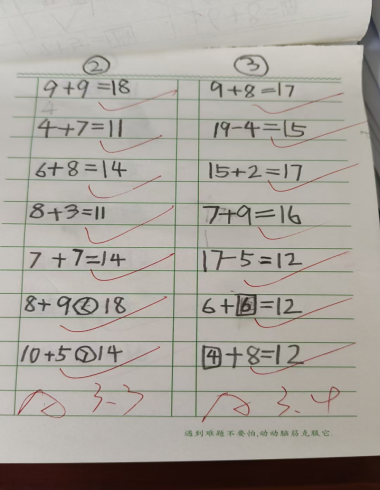 ② ③
9+9=18 9+8=17
4+7=11 19-4=15
6+8=14 15+2=17
8+3=11 7+9=16
7+7=14 17-5=12
8+9<18 6+6=12
10+5>14 4+8=12
3.3 3.4
遇到难题不要怕,动动脑筋克服它.